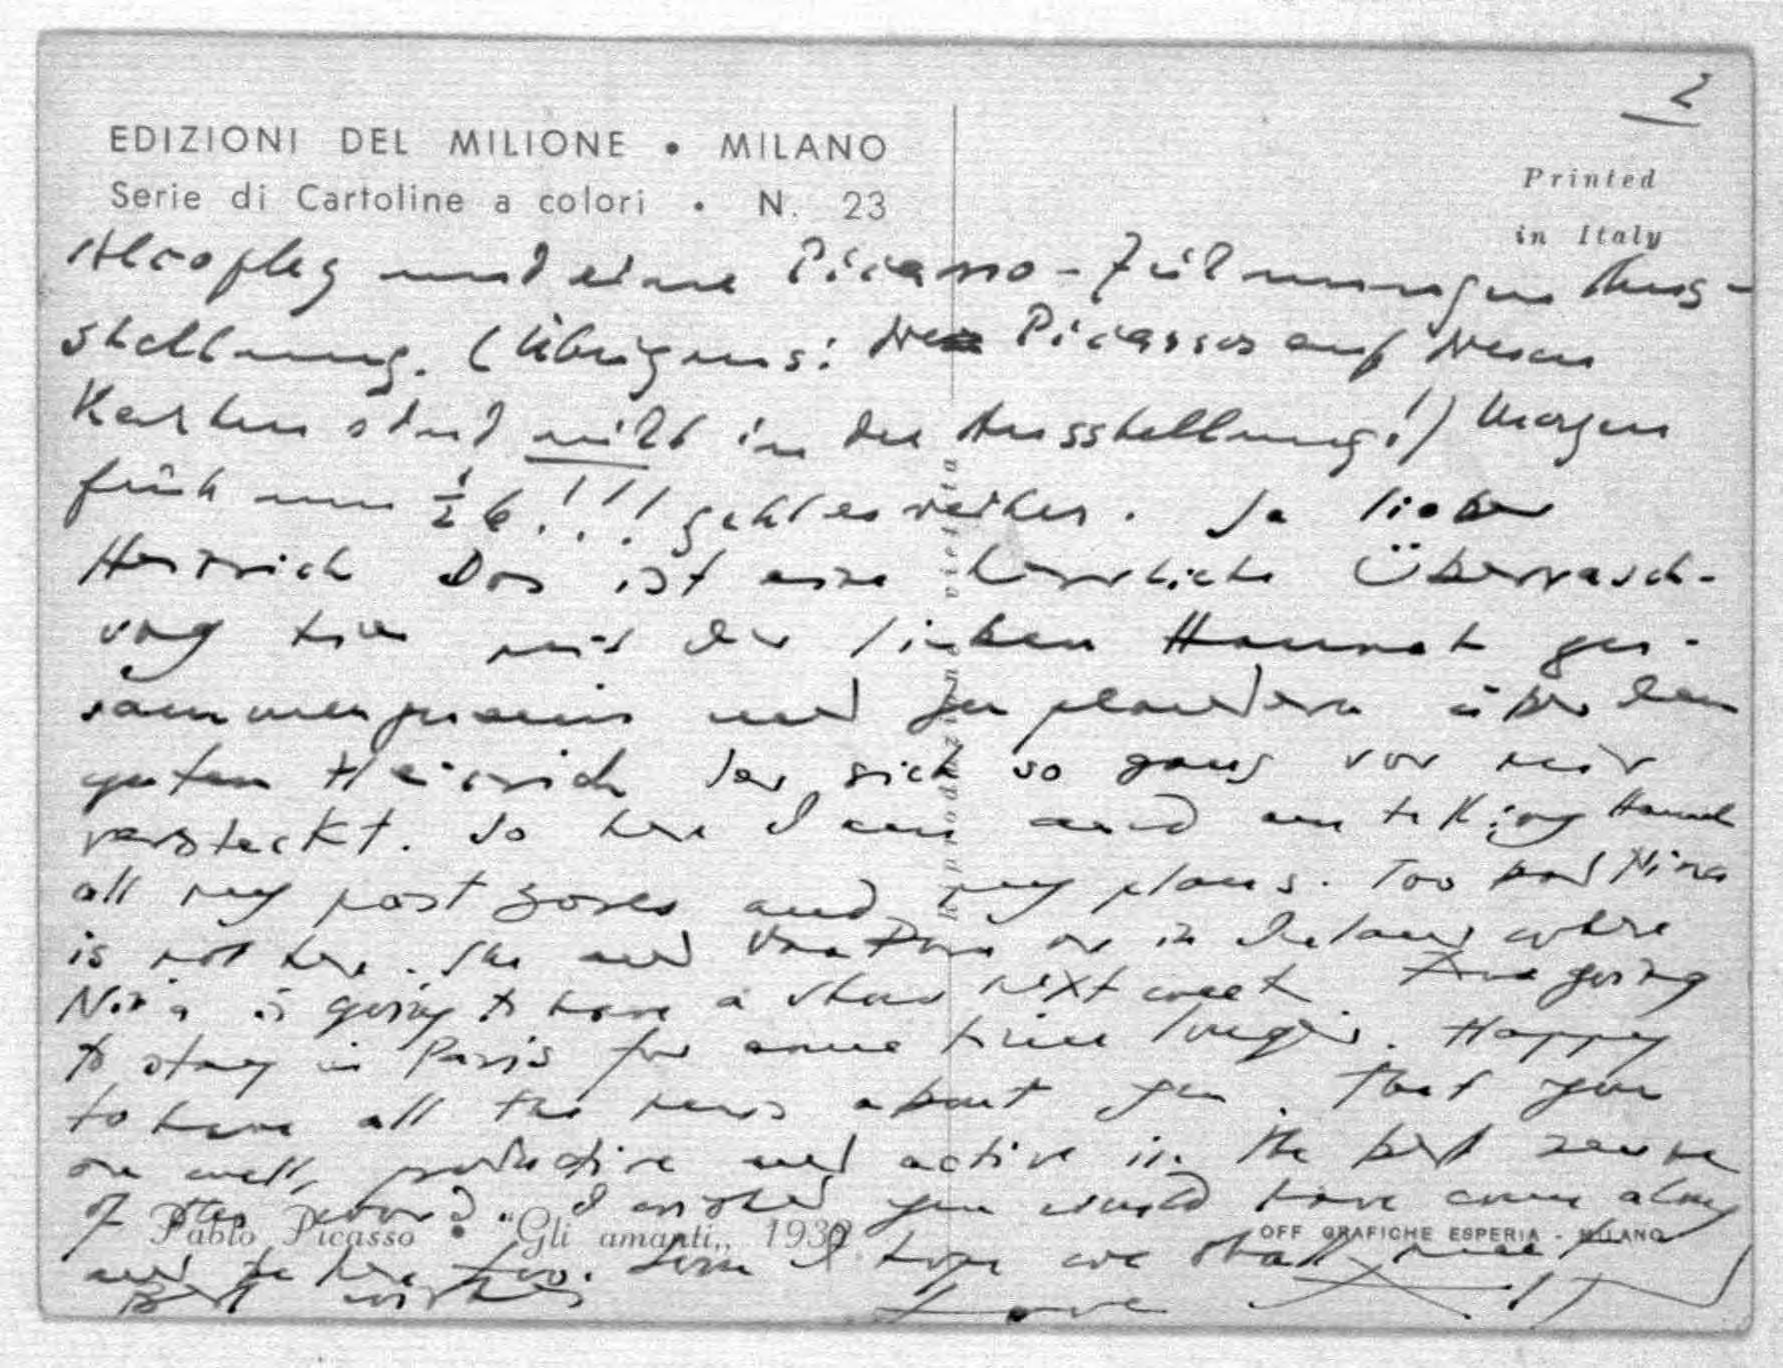 2
EDIZIONI DEL MILIONE • MILANO
Serie di Cartoline a colori • N. 23
Printed
in Italy
und eine Picasso - Aus-
stellung. (Übrigens: Picassos auf
Karten sind nicht in der Ausstellung!) Morgen
früh um ½ 6!!! geht es weiter. Ja lieber
Heinrich Das ist eine herrliche Überrasch-
ung hier mit der lieben Hannah zu-
sammen und zu plaudern über den
guten Heinrich der sich so ganz vor mir
versteckt. So here I am and am telling Hannah
all my past and my plans. Too bad Nina
is not here. She and are in where
Nina is going to have a show next week going
to stay in Paris for some time longer. Happy
to have all the news about you. That you
are well, productive and active in the best sense
of the word. I wished you would have come along
Pablo Picasso • "Gli amanti,, 1932
OFF GRAFICHE ESPERIA - MILANO
and be here too. I hope we shall
Best wishes Love
Riproduzione vietata